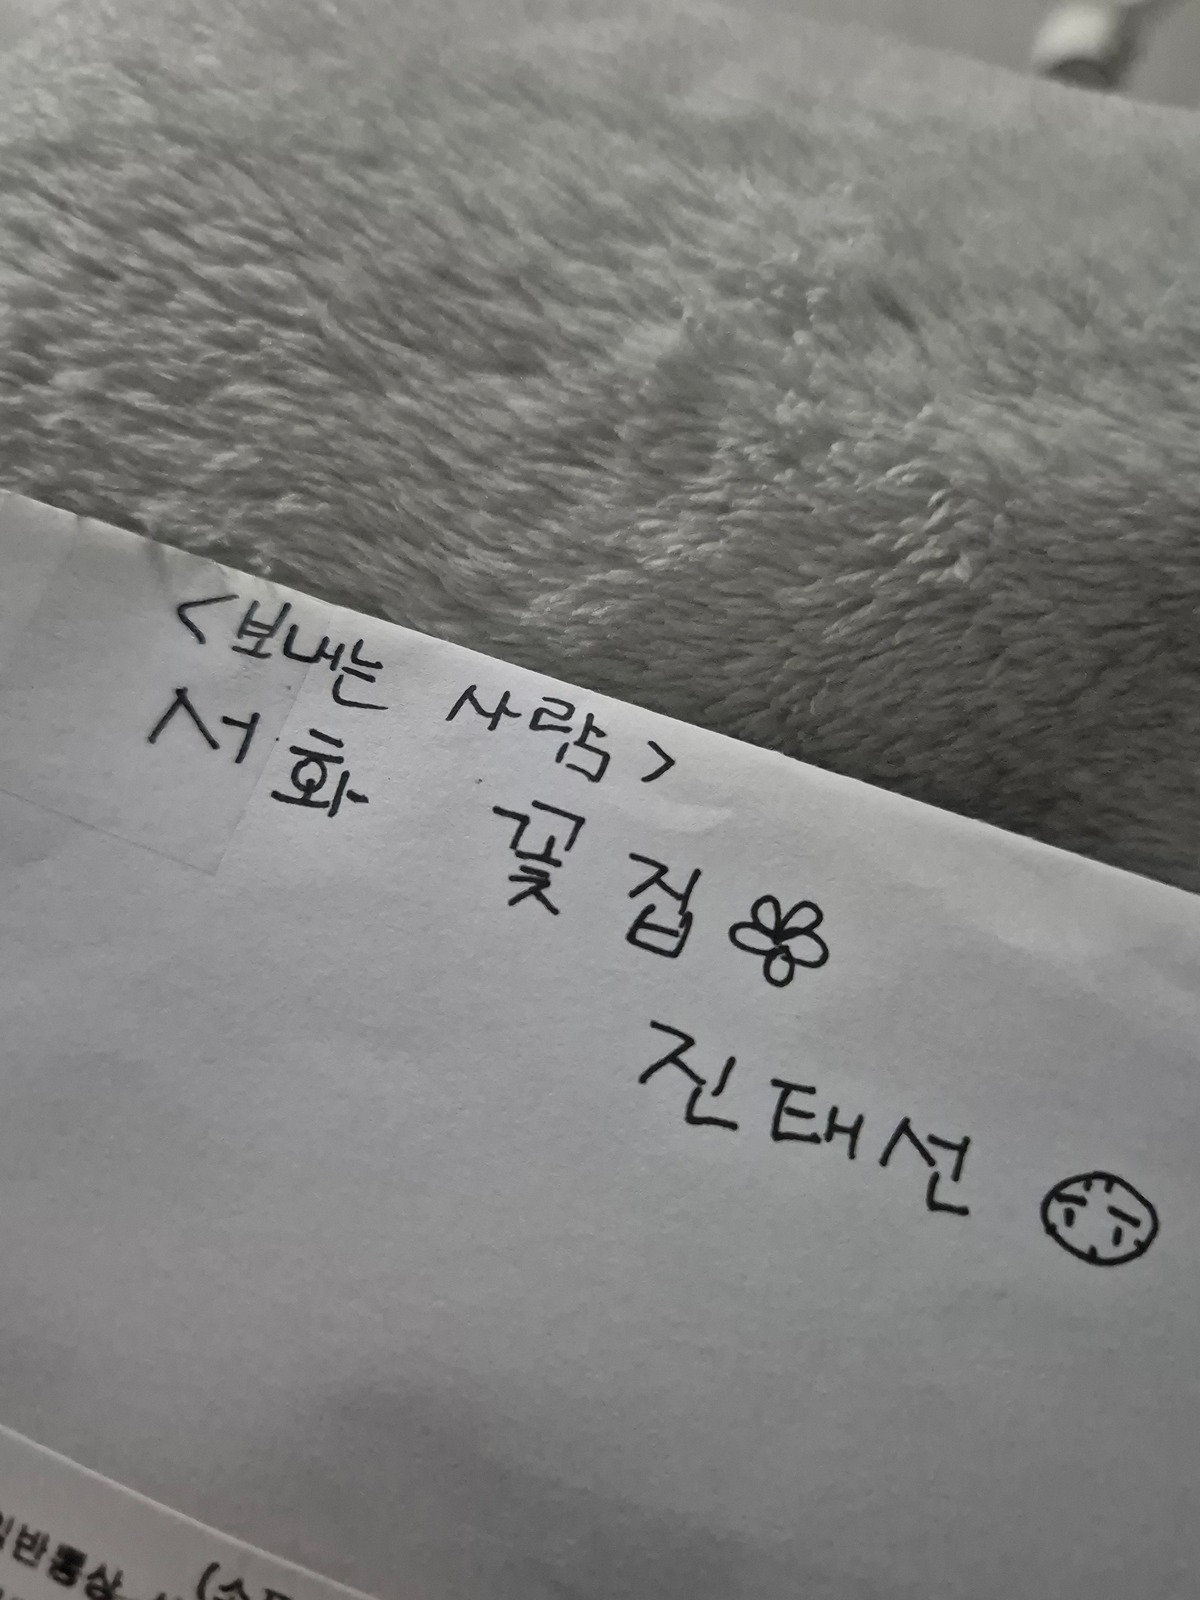 <보내는 사람>
서화 꽃집
진태선
일반통상 (소포